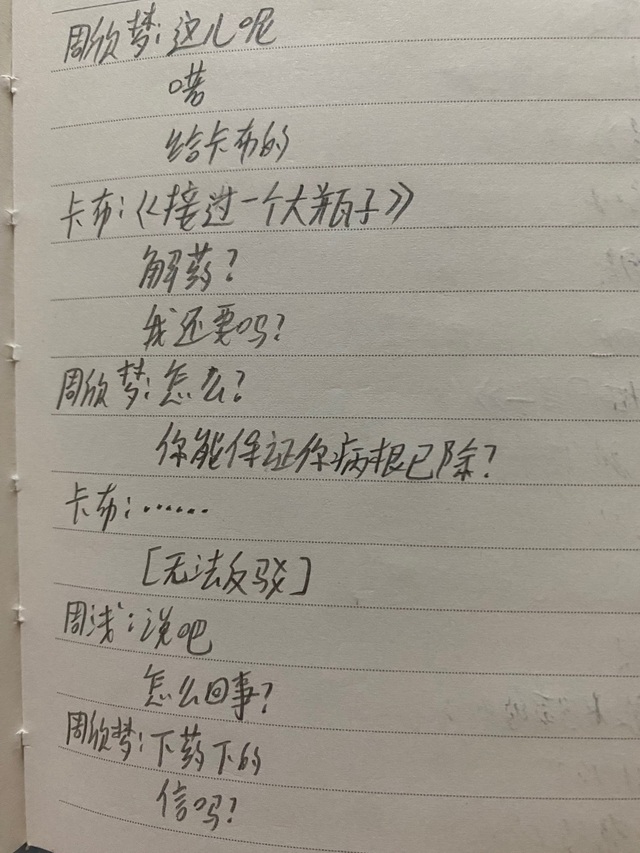 周欣梦：这儿呢
喏
给卡布的
卡布：《接过一个大瓶子》
解药？
我还要吗？
周欣梦：怎么？
你能保证你病根已除？
卡布：……
[无法反驳]
周浅：说吧
怎么回事？
周欣梦：下药下的
信吗？